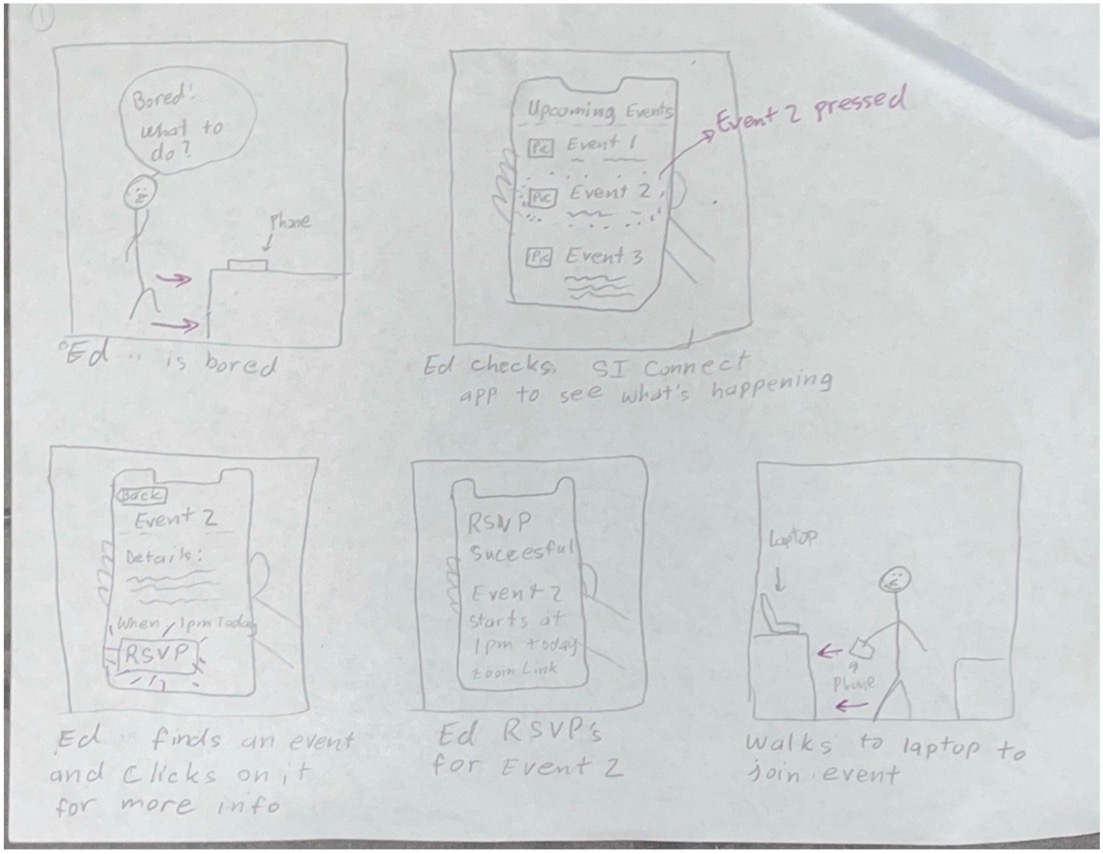 1
Bored!
what to
do?
Phone
Ed is bored
Upcoming Events
Pic Event 1
Pic Event 2
Pic Event 3
Event 2 pressed
Ed checks SI Connect
app to see what's happening
Back
Event 2
Details:
When / 1pm Today
RSVP
Ed finds an event
and clicks on it
for more info
RSVP
Succesful
Event 2
starts at
1pm today
Zoom Link
Ed RSVP's
for Event 2
Laptop
Phone
Walks to laptop to
join event